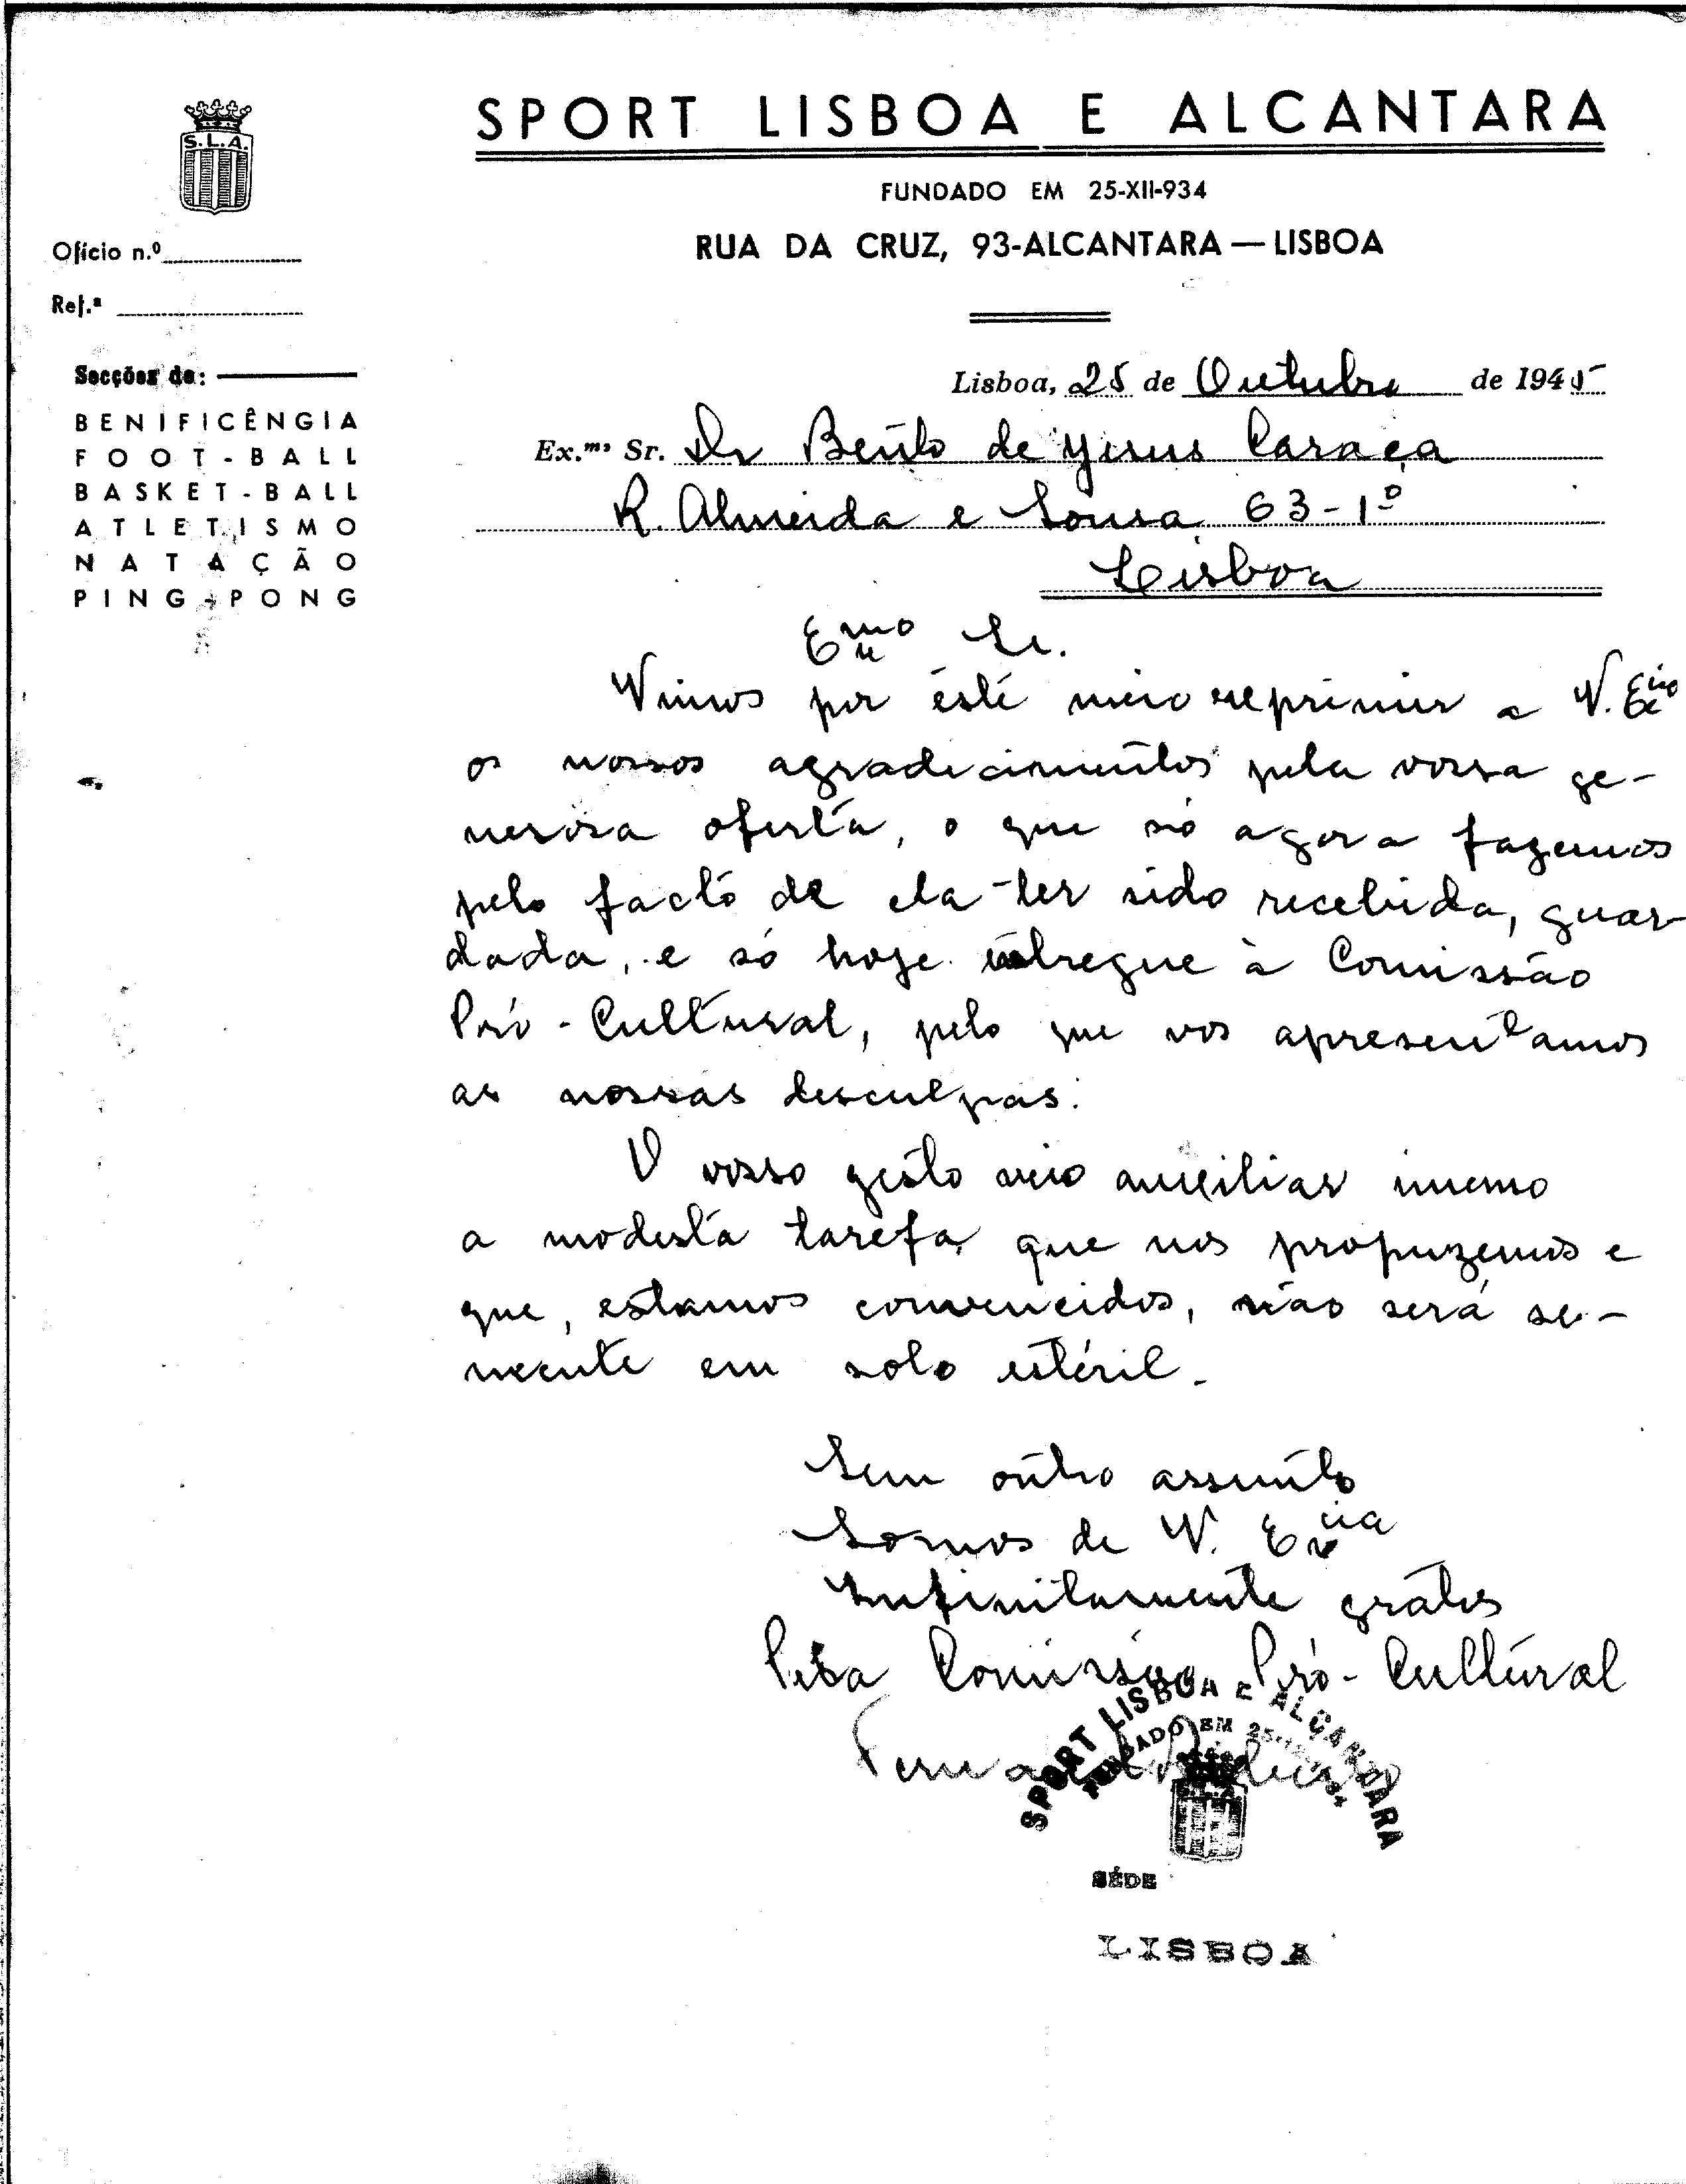 SPORT LISBOA E ALCANTARA
FUNDADO EM 25-XII-934
RUA DA CRUZ, 93-ALCANTARA — LISBOA
S.L.A.
Ofício n.º
Ref.ª
Secções de:
BENIFICÊNGIA
FOOT-BALL
BASKET-BALL
ATLETISMO
NATAÇÃO
PING-PONG
Lisboa, 25 de Outubro de 1945
Ex.mo Sr. Dr Bento de Jesus Caraça
R. Almeida e Sousa 63-1º
Lisboa
Exmo Sr.
Vimos por êste meio exprimir a V. Excia
os nossos agradecimentos pela vossa ge-
nerosa oferta, o que só agora fazemos
pelo facto de ela ter sido recebida, guar
dada, e só hoje entregue à Comissão
Pró-Cultural, pelo que vos apresentamos
as nossas desculpas.
O vosso gesto veio auxiliar imenso
a modesta tarefa que nos propuzemos e
que, estamos convencidos, não será se-
mente em solo estéril.
Sem outro assunto
Somos de V. Excia
Infinitamente gratos
Pela Comissão Pró-Cultural
SPORT LISBOA E ALCANTARA
FUNDADO EM 25-
SÉDE
LISBOA